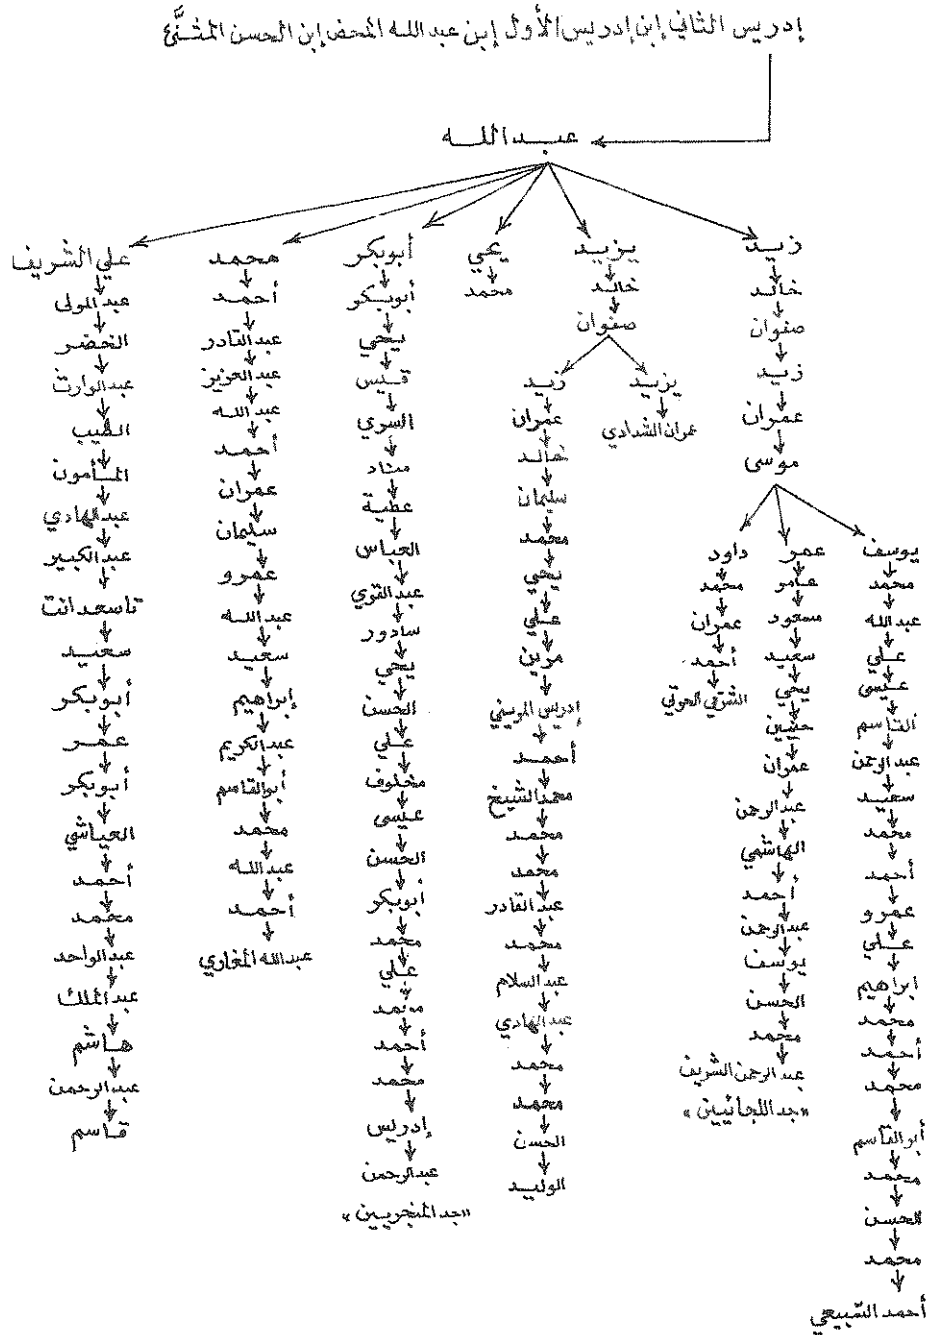 إدريس الثاني إبن إدريس الأول إبن عبد الله المحض إبن الحسن المثنَّى
عبد الله
زيد
خالد
صفوان
زيد
عمران
موسى
يوسف
محمد
عبد الله
علي
عيسى
القاسم
عبد الرحمن
سعيد
محمد
أحمد
عمرو
علي
ابراهيم
محمد
أحمد
محمد
أبو القاسم
محمد
الحسن
محمد
أحمد السبيعي
عمر
عامر
مسعود
سعيد
يحي
حنين
عمران
عبد الرحمن
الهاشمي
أحمد
عبد الرحمن
يوسف
الحسن
محمد
عبد الرحمن الشريف
«جد اللجائيين»
داود
محمد
عمران
أحمد
الشرقي
يزيد
خالد
صفوان
يزيد
عمران الشدادي
زيد
عمران
خالد
سليمان
محمد
يحي
علي
مرين
إدريس المريني
أحمد
محمد الشيخ
محمد
محمد
عبد القادر
محمد
عبد السلام
عبد الهادي
محمد
محمد
الحسن
الوليد
يحي
محمد
أبوبكر
أبوبكر
يحي
قيس
السري
مناد
عطية
العباس
عبد القوي
سادور
يحي
الحسن
علي
مخلوف
عيسى
الحسن
أبوبكر
محمد
علي
محمد
أحمد
محمد
إدريس
عبد الرحمن
«جد المنجريين»
محمد
أحمد
عبد القادر
عبد العزيز
عبد الله
أحمد
عمران
سليمان
عمرو
عبد الله
سعيد
إبراهيم
عبد الكريم
أبو القاسم
محمد
عبد الله
أحمد
عبد الله المغاري
علي الشريف
عبد المولى
الخضر
عبد الوارث
الطيب
المأمون
عبد الهادي
عبد الكبير
تاسعدانت
سعيد
أبوبكر
عمر
أبوبكر
العياشي
أحمد
محمد
عبد الواحد
عبد الملك
هاشم
عبد الرحمن
قاسم